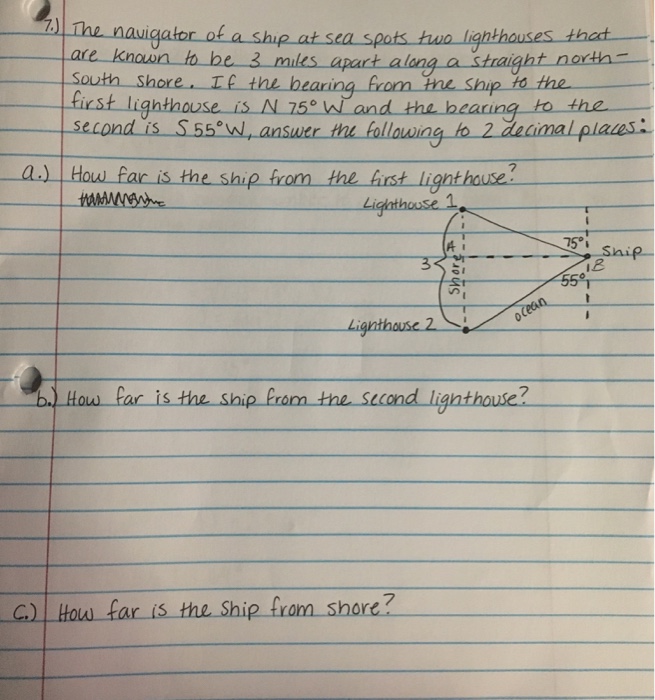 7.) The navigator of a ship at sea spots two lighthouses that
are known to be 3 miles apart along a straight north-
south shore. If the bearing from the ship to the
first lighthouse is N 75° W and the bearing to the
second is S 55° W, answer the following to 2 decimal places:
a.) How far is the ship from the first lighthouse?
Lighthouse 1
75°
Ship
A
3
Shore
B
55°
ocean
Lighthouse 2
b.) How far is the ship from the second lighthouse?
C.) How far is the ship from shore?